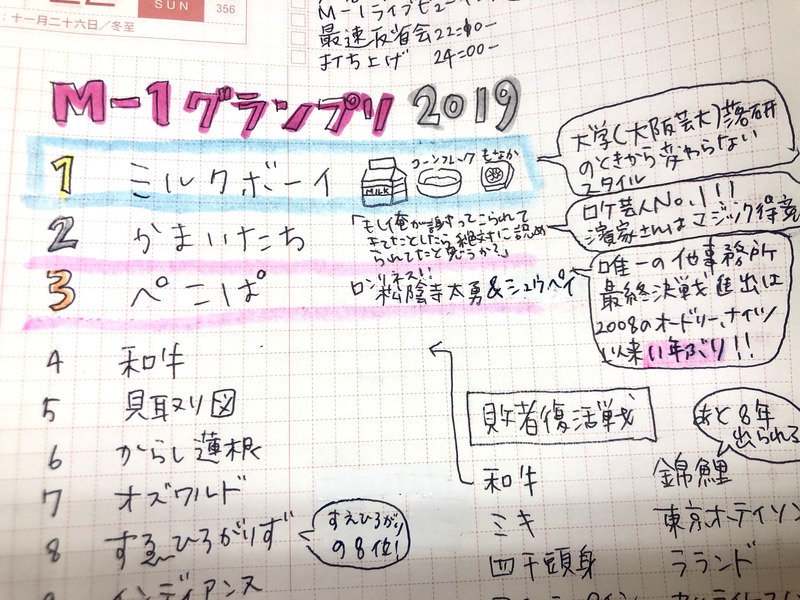 十一月二十六日／冬至
SUN
356
M-1ライブビュー
最速反省会22:00-
打ち上げ 24:00-
M-1グランプリ 2019
1 ミルクボーイ
MILK
コーンフレーク
もなか
大学(大阪芸大)落研
のときから変わらない
スタイル
2 かまいたち
「もし俺が謝ってこられて
きてたとしたら絶対に認め
られてたと思うか?」
ロケ芸人No.1!!
濱家さんはマジック得意
3 ぺこぱ
ロンリネス!!
松陰寺太勇&シュウペイ
唯一の他事務所
最終決戦進出は
2008のオードリー、ナイツ
以来11年ぶり!!
4 和牛
5 見取り図
6 からし蓮根
7 オズワルド
8 すゑひろがりず
すえひろがり
の8位!
インディアンス
敗者復活戦
あと8年
出られる
和牛
錦鯉
ミキ
東京ホテイソン
四千頭身
ラランド